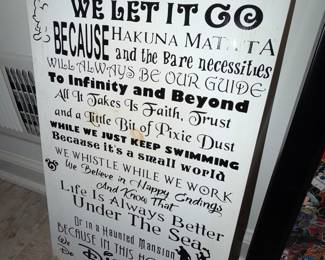 WE LET IT GO
BECAUSE HAKUNA MATATA
and the Bare necessities
WILL ALWAYS BE OUR GUIDE
To Infinity and Beyond
All It Takes Is Faith, Trust
and a Little Bit of Pixie Dust
WHILE WE JUST KEEP SWIMMING
Because it's a small world
WE WHISTLE WHILE WE WORK
We Believe in Happy Endings
And Know That
Life Is Always Better
Under The Sea
Or in a Haunted Mansion
BECAUSE IN THIS HO
We
Do